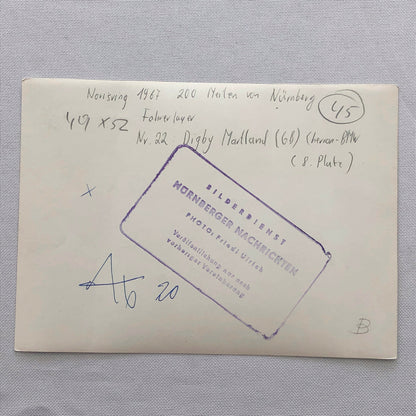 Norisring 1967 200 Meilen von Nürnberg
45
419 x 52
Fahrerlager
Nr. 22 Digby Martland (GB) (BMW
(8. Platz)
x
BILDERDIENST
NÜRNBERGER NACHRICHTEN
PHOTO: Friedl Ulrich
Veröffentlichung nur nach
vorheriger Vereinbarung
20
B